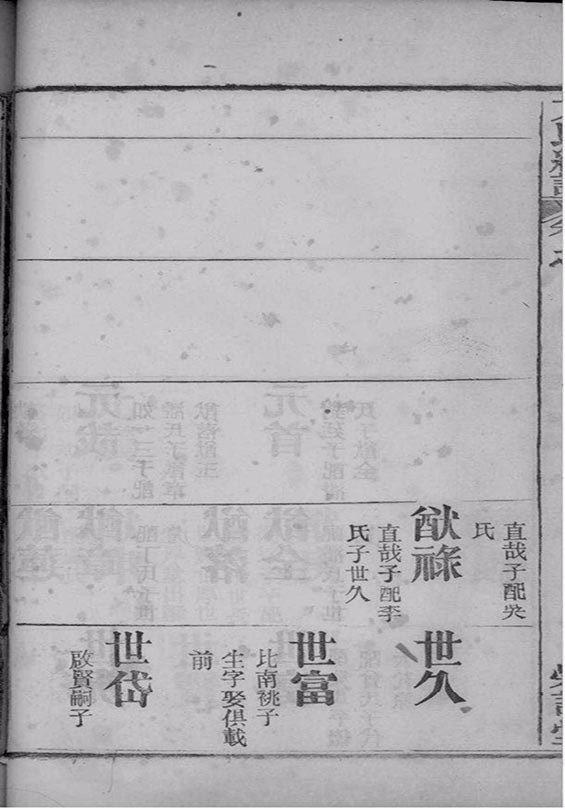 直哉子配吳
氏
猷祿
直哉子配李
氏子世久
世久
世富
比南祧子
生字娶俱載
前
世岱
啟賢嗣子